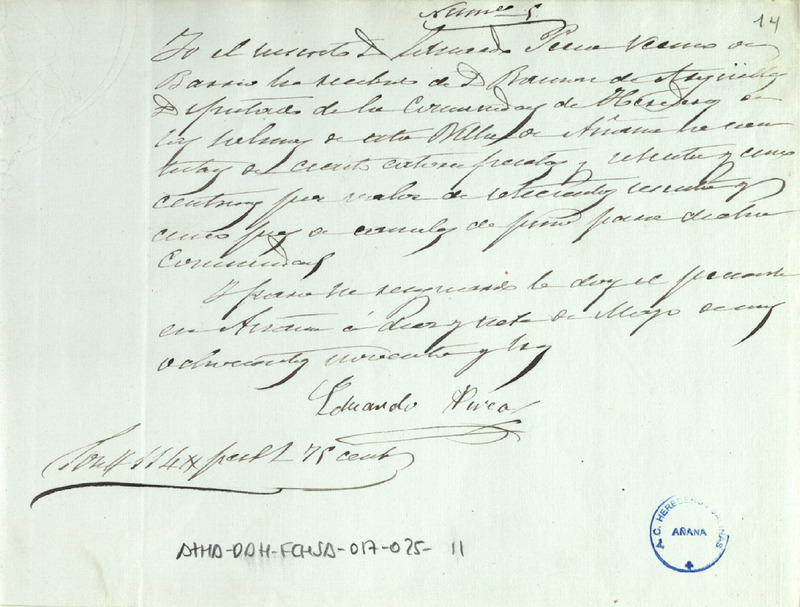 14
Yo el suscrito D. Eduardo vecino de
Barrio he recibido de D. Ramon de Argüelles
Diputado de la Comunidad de Herederos de
las salinas de esta Villa de Añana la can
tidad de ciento catorce pesetas y setenta y cinco
centimos por valor de setecientos sesenta y
cinco de de pino para dicha
Comunidad
Y para su resguardo le doy el presente
en Añana á Diez y siete de Mayo de mil
ochocientos noventa y tres
Eduardo
Son 114 pesetas 75 cents
ATHA-DAH-FCHSA-017-025-11
A.C. HEREDEROS SALINAS
AÑANA